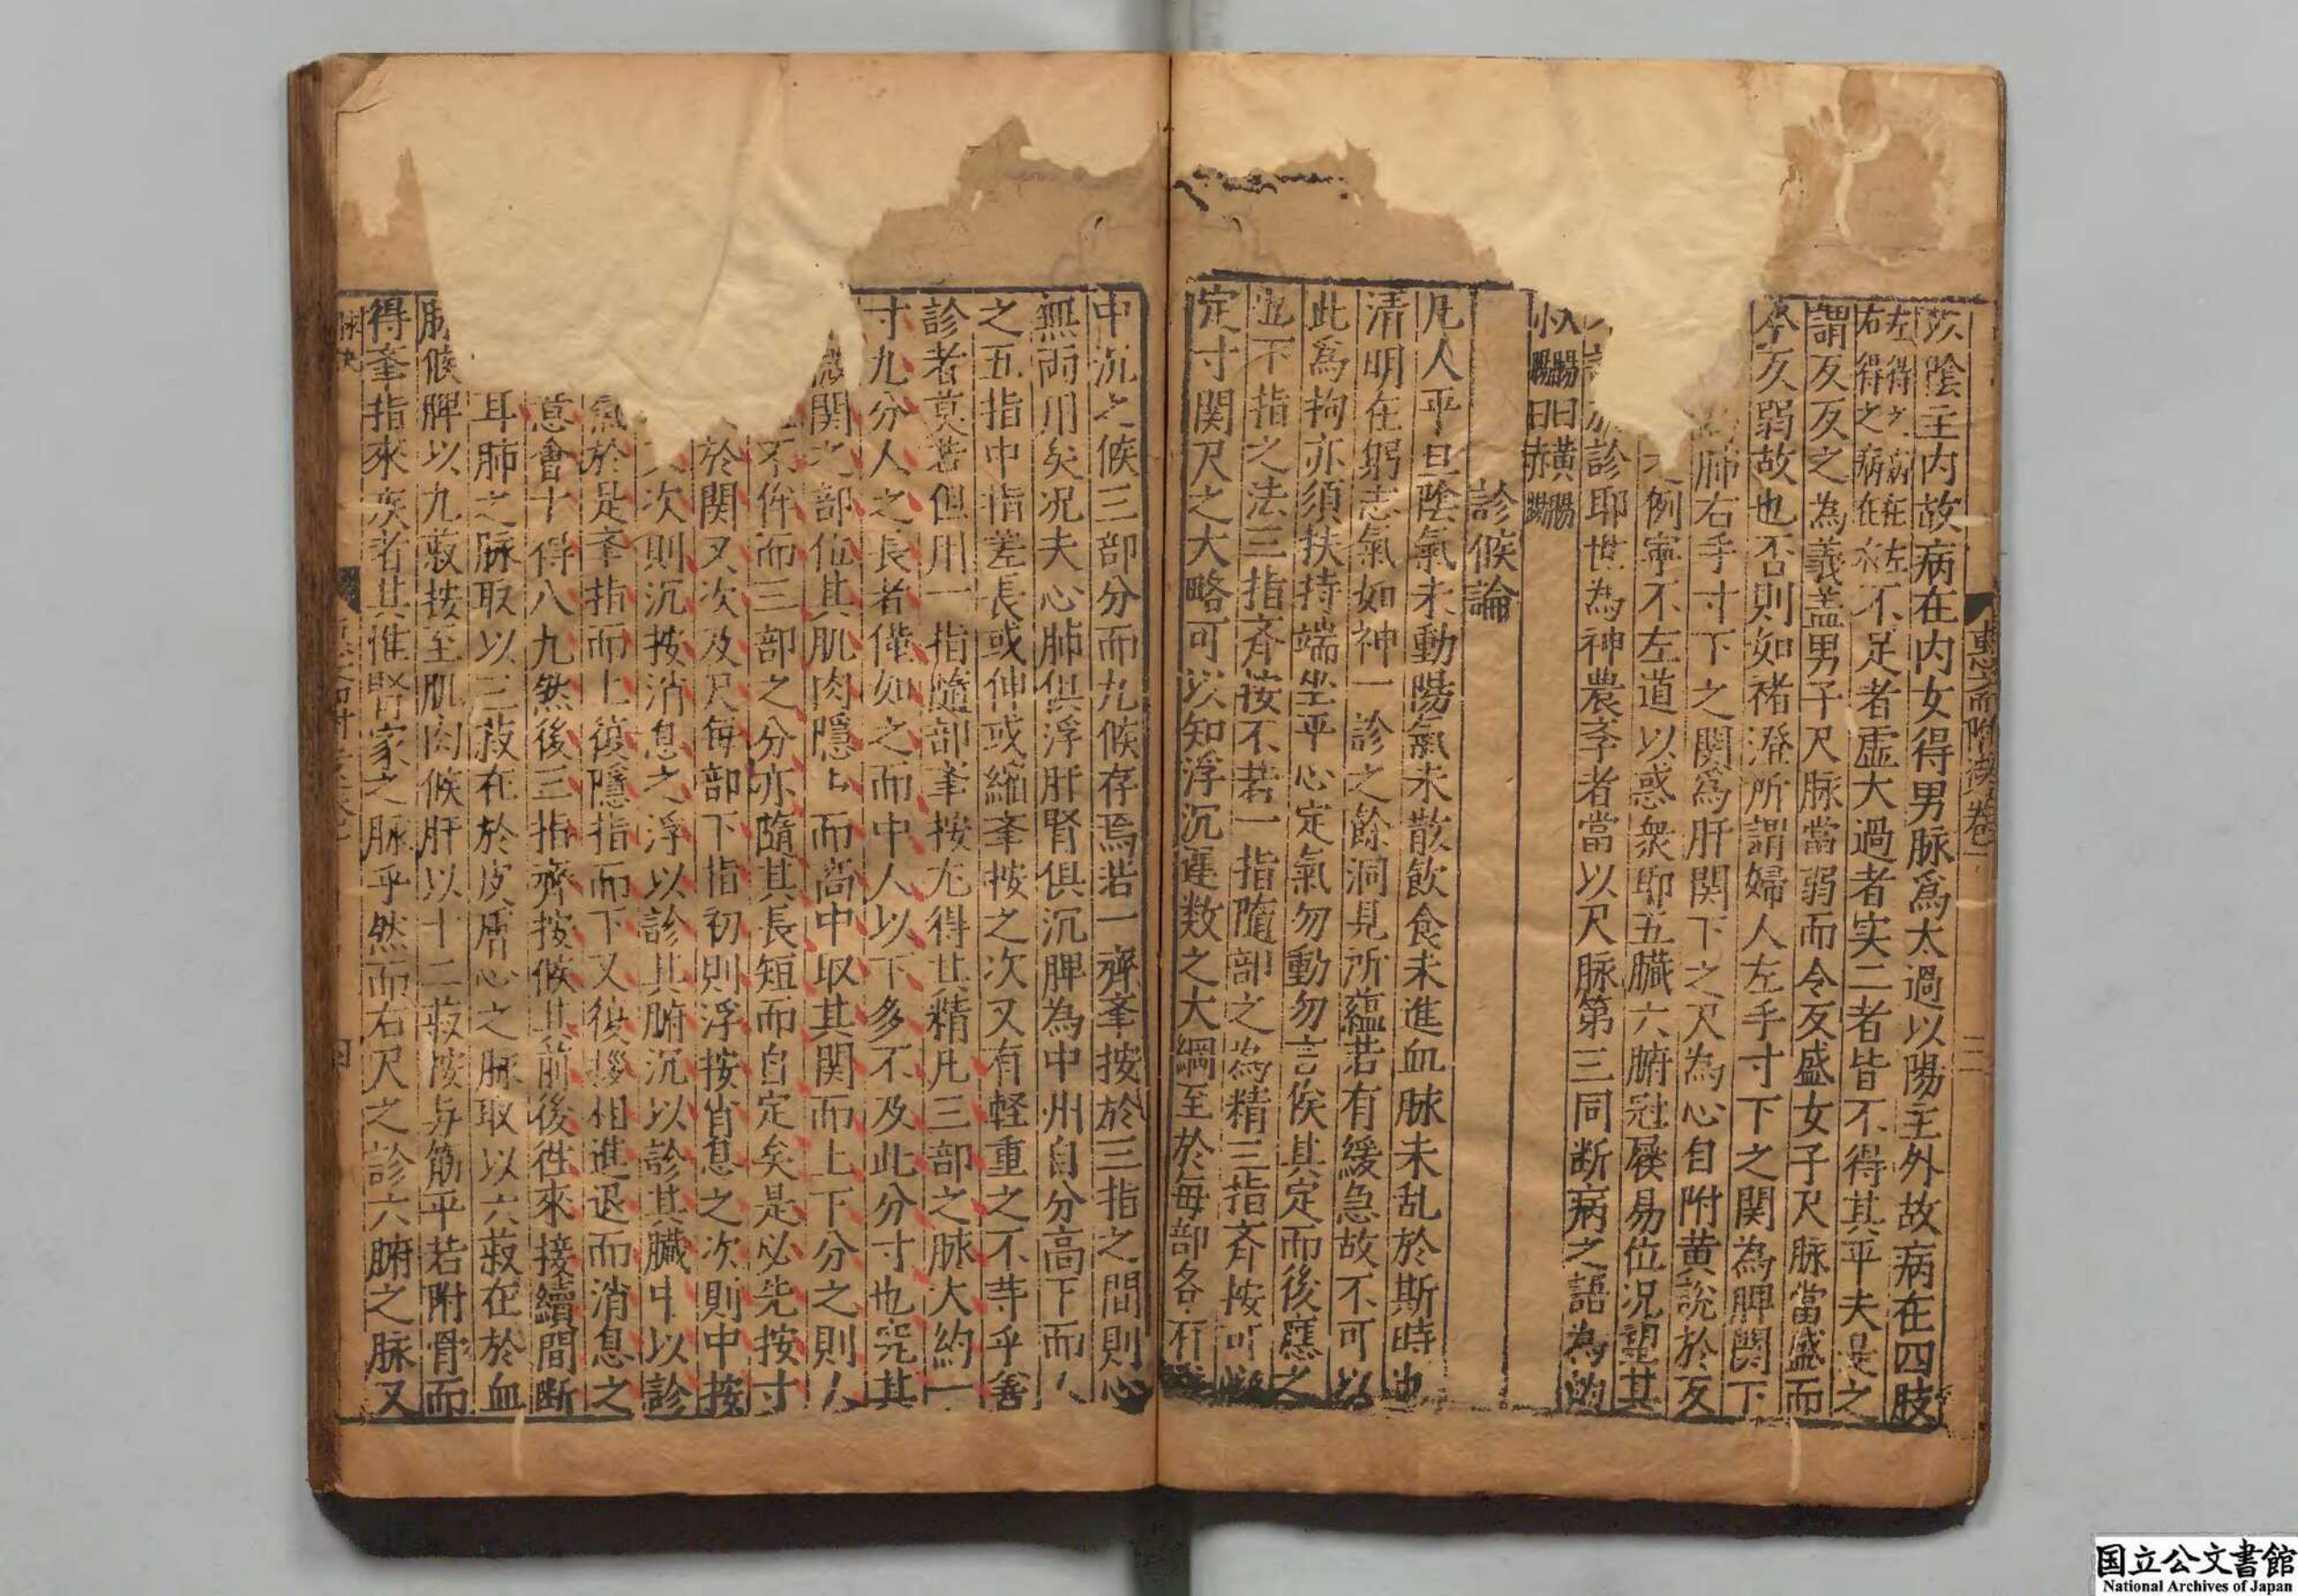 惠齋附遺卷一
三
以陰主内故病在内女得男脉爲太過以陽主外故病在四肢
左得之病在左
右得之病在右不足者虚大過者实二者皆不得其平夫是之
謂反反之為義盖男子尺脉當弱而令反盛女子尺脉當盛而
今反弱故也否則如褚澄所謂婦人左手寸下之関為脾関下
肺右手寸下之関爲肝関下之尺為心自附黄説於反
例寧不左道以惑衆耶五臓六腑冠屨易位况望其
診耶世為神農孝者當以尺脉第三同断病之語為的
診候論
凡人平旦陰氣未動陽氣未散飲食未進血脉未乱於斯時也
清明在躬志氣如神一診之餘洞見所蘊若有緩急故不可以
此為拘亦須扶持端坐平心定氣勿動勿言俟其定而後應之
且不指之法三指斉按不若一指隨部之為精三指斉按可以
定寸関尺之大略可以知浮沉遲数之大綱至於每部各有
中沉之候三部分而九候存焉若一齊牽按於三指之間則心
無兩用矣况夫心肺倶浮肝腎倶沉脾為中州自分高下而人
之五指中指差長或伸或縮牽按之次又有軽重之不䓁乎善
診者莫若但用一指隨部牽按尤得其精凡三部之脉大約一
寸九分人之長者僅如之而中人以下多不及此分寸也究其
関之部位其肌肉隱上而高中取其関而上下分之則人
不侔而三部之分亦隨其長短而自定矣是必先按寸
於関又次及尺每部下指初則浮按消息之次則中按
次則沉按消息之浮以診其腑沉以診其臓中以診
氣於是牽指而上復隱指而下又復挼相進退而消息之
意會十得八九然後三指齊按候其前後徃來接續間断
耳肺之脉取以三菽在於皮膚心之脉取以六菽在於血
脉候脾以九菽按至肌肉候肝以十二菽按与筋平若附骨而
得牽指來疾者其惟腎家之脉乎然而右尺之診六腑之脉又
脉决
四
国立公文書館
National Archives of Japan